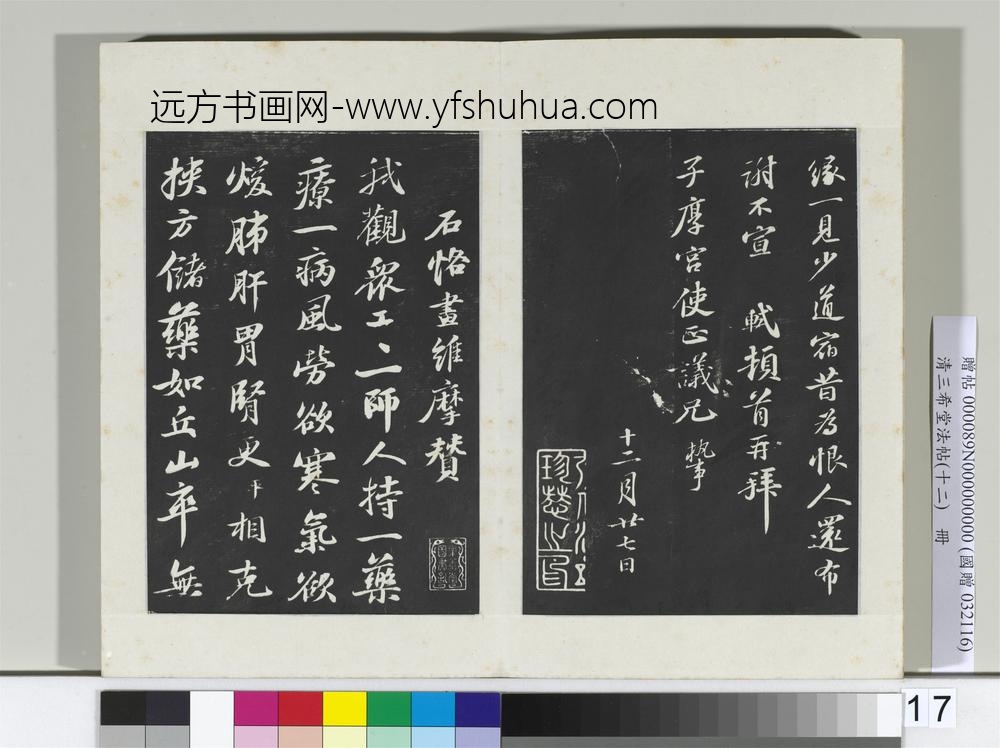 远方书画网-www.yfshuhua.com
緣一見少道宿昔為恨人還布
謝不宣 軾頓首再拜
子厚宮使正議兄 執事
十二月廿七日
石恪畫維摩贊
我觀眾工工師人持一藥
療一病風勞欲寒氣欲
煖肺肝胃腎更 相克
挾方儲藥如丘山卒無
贈帖 000089N000000000 (國贈 032116)
清三希堂法帖(十二) 冊
17